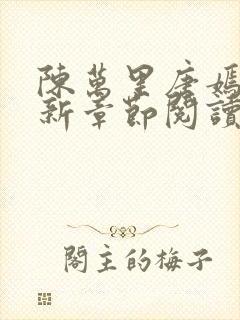 陳萬里唐嫣
新章節閱讀
閣主的梅子